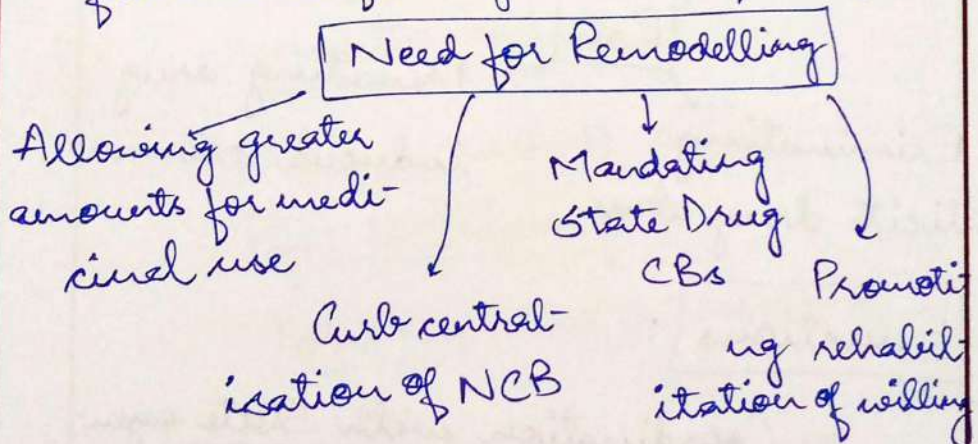 Need for Remodelling
Allowing greater
amounts for medi-
cinal use
Curb central-
isation of NCB
Mandating
State Drug
CBs
Promoti
ng rehabil-
itation of willing